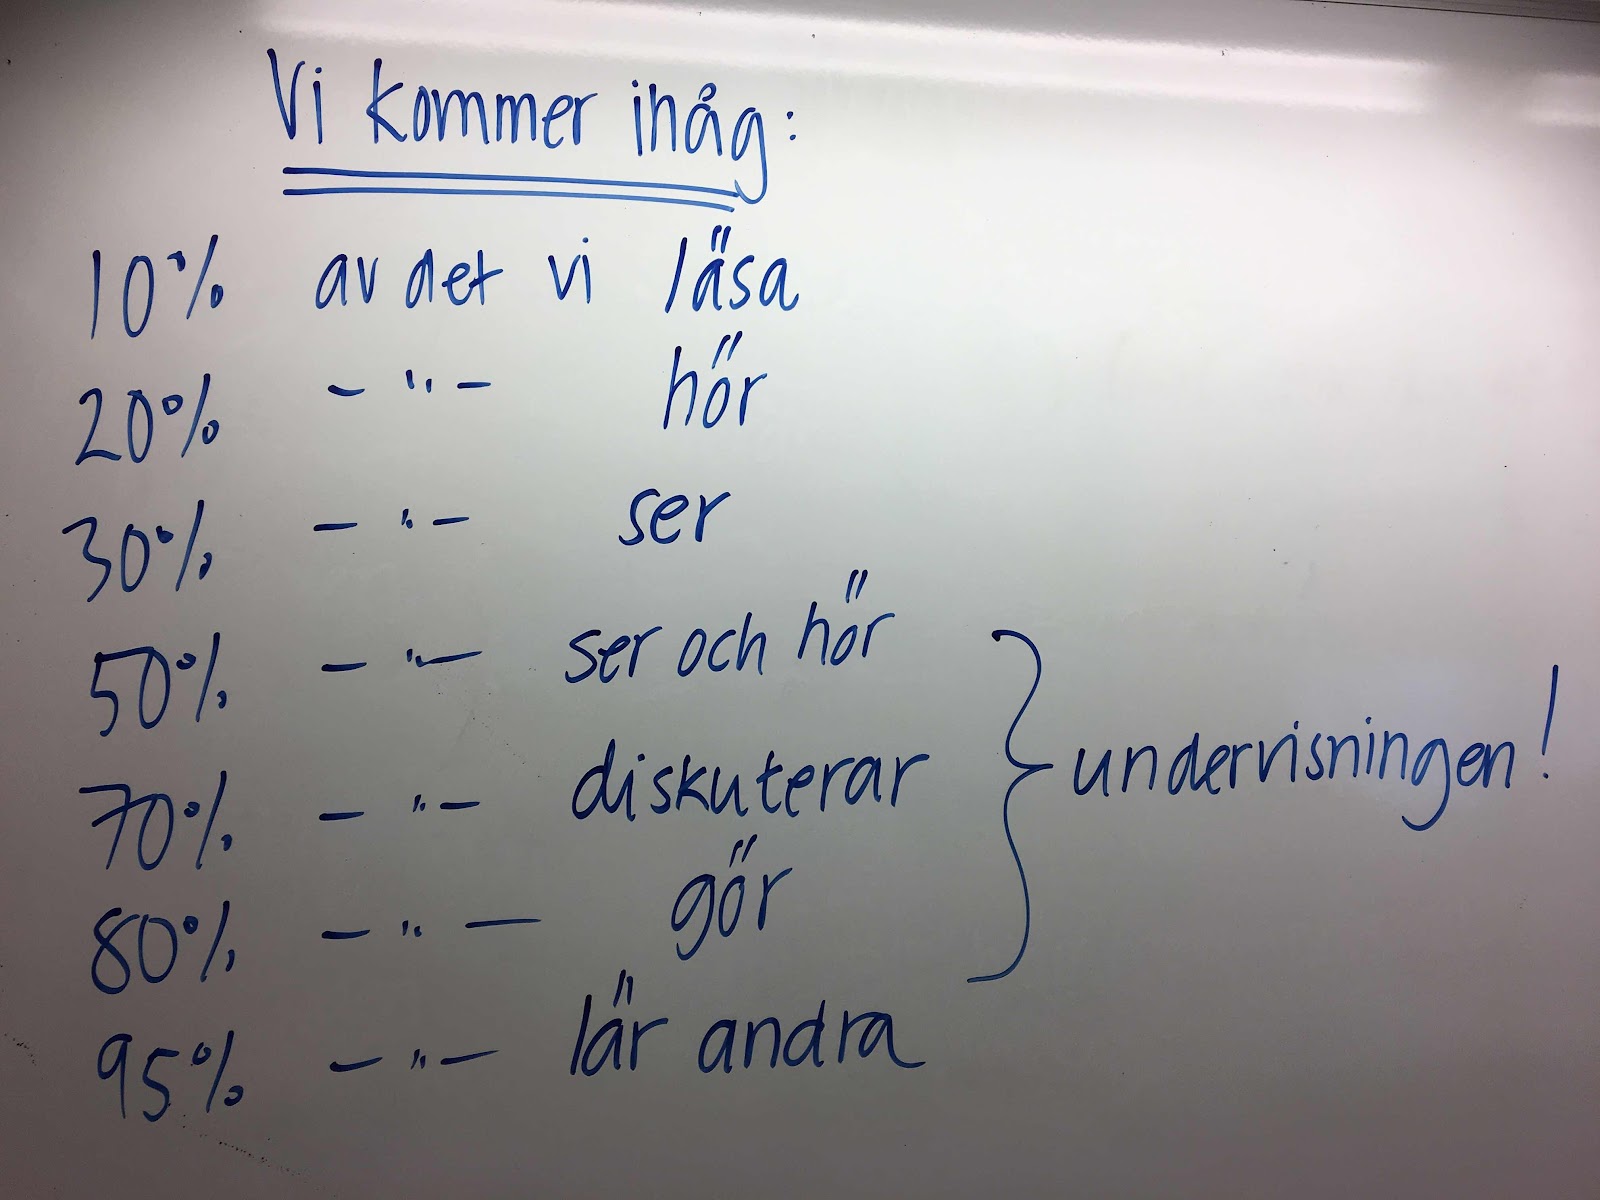 Vi kommer ihåg:
10% av det vi läsa
20% - " - hör
30% - " - ser
50% - " - ser och hör
70% - " - diskuterar
undervisningen!
80% - " - gör
95% - " - lär andra